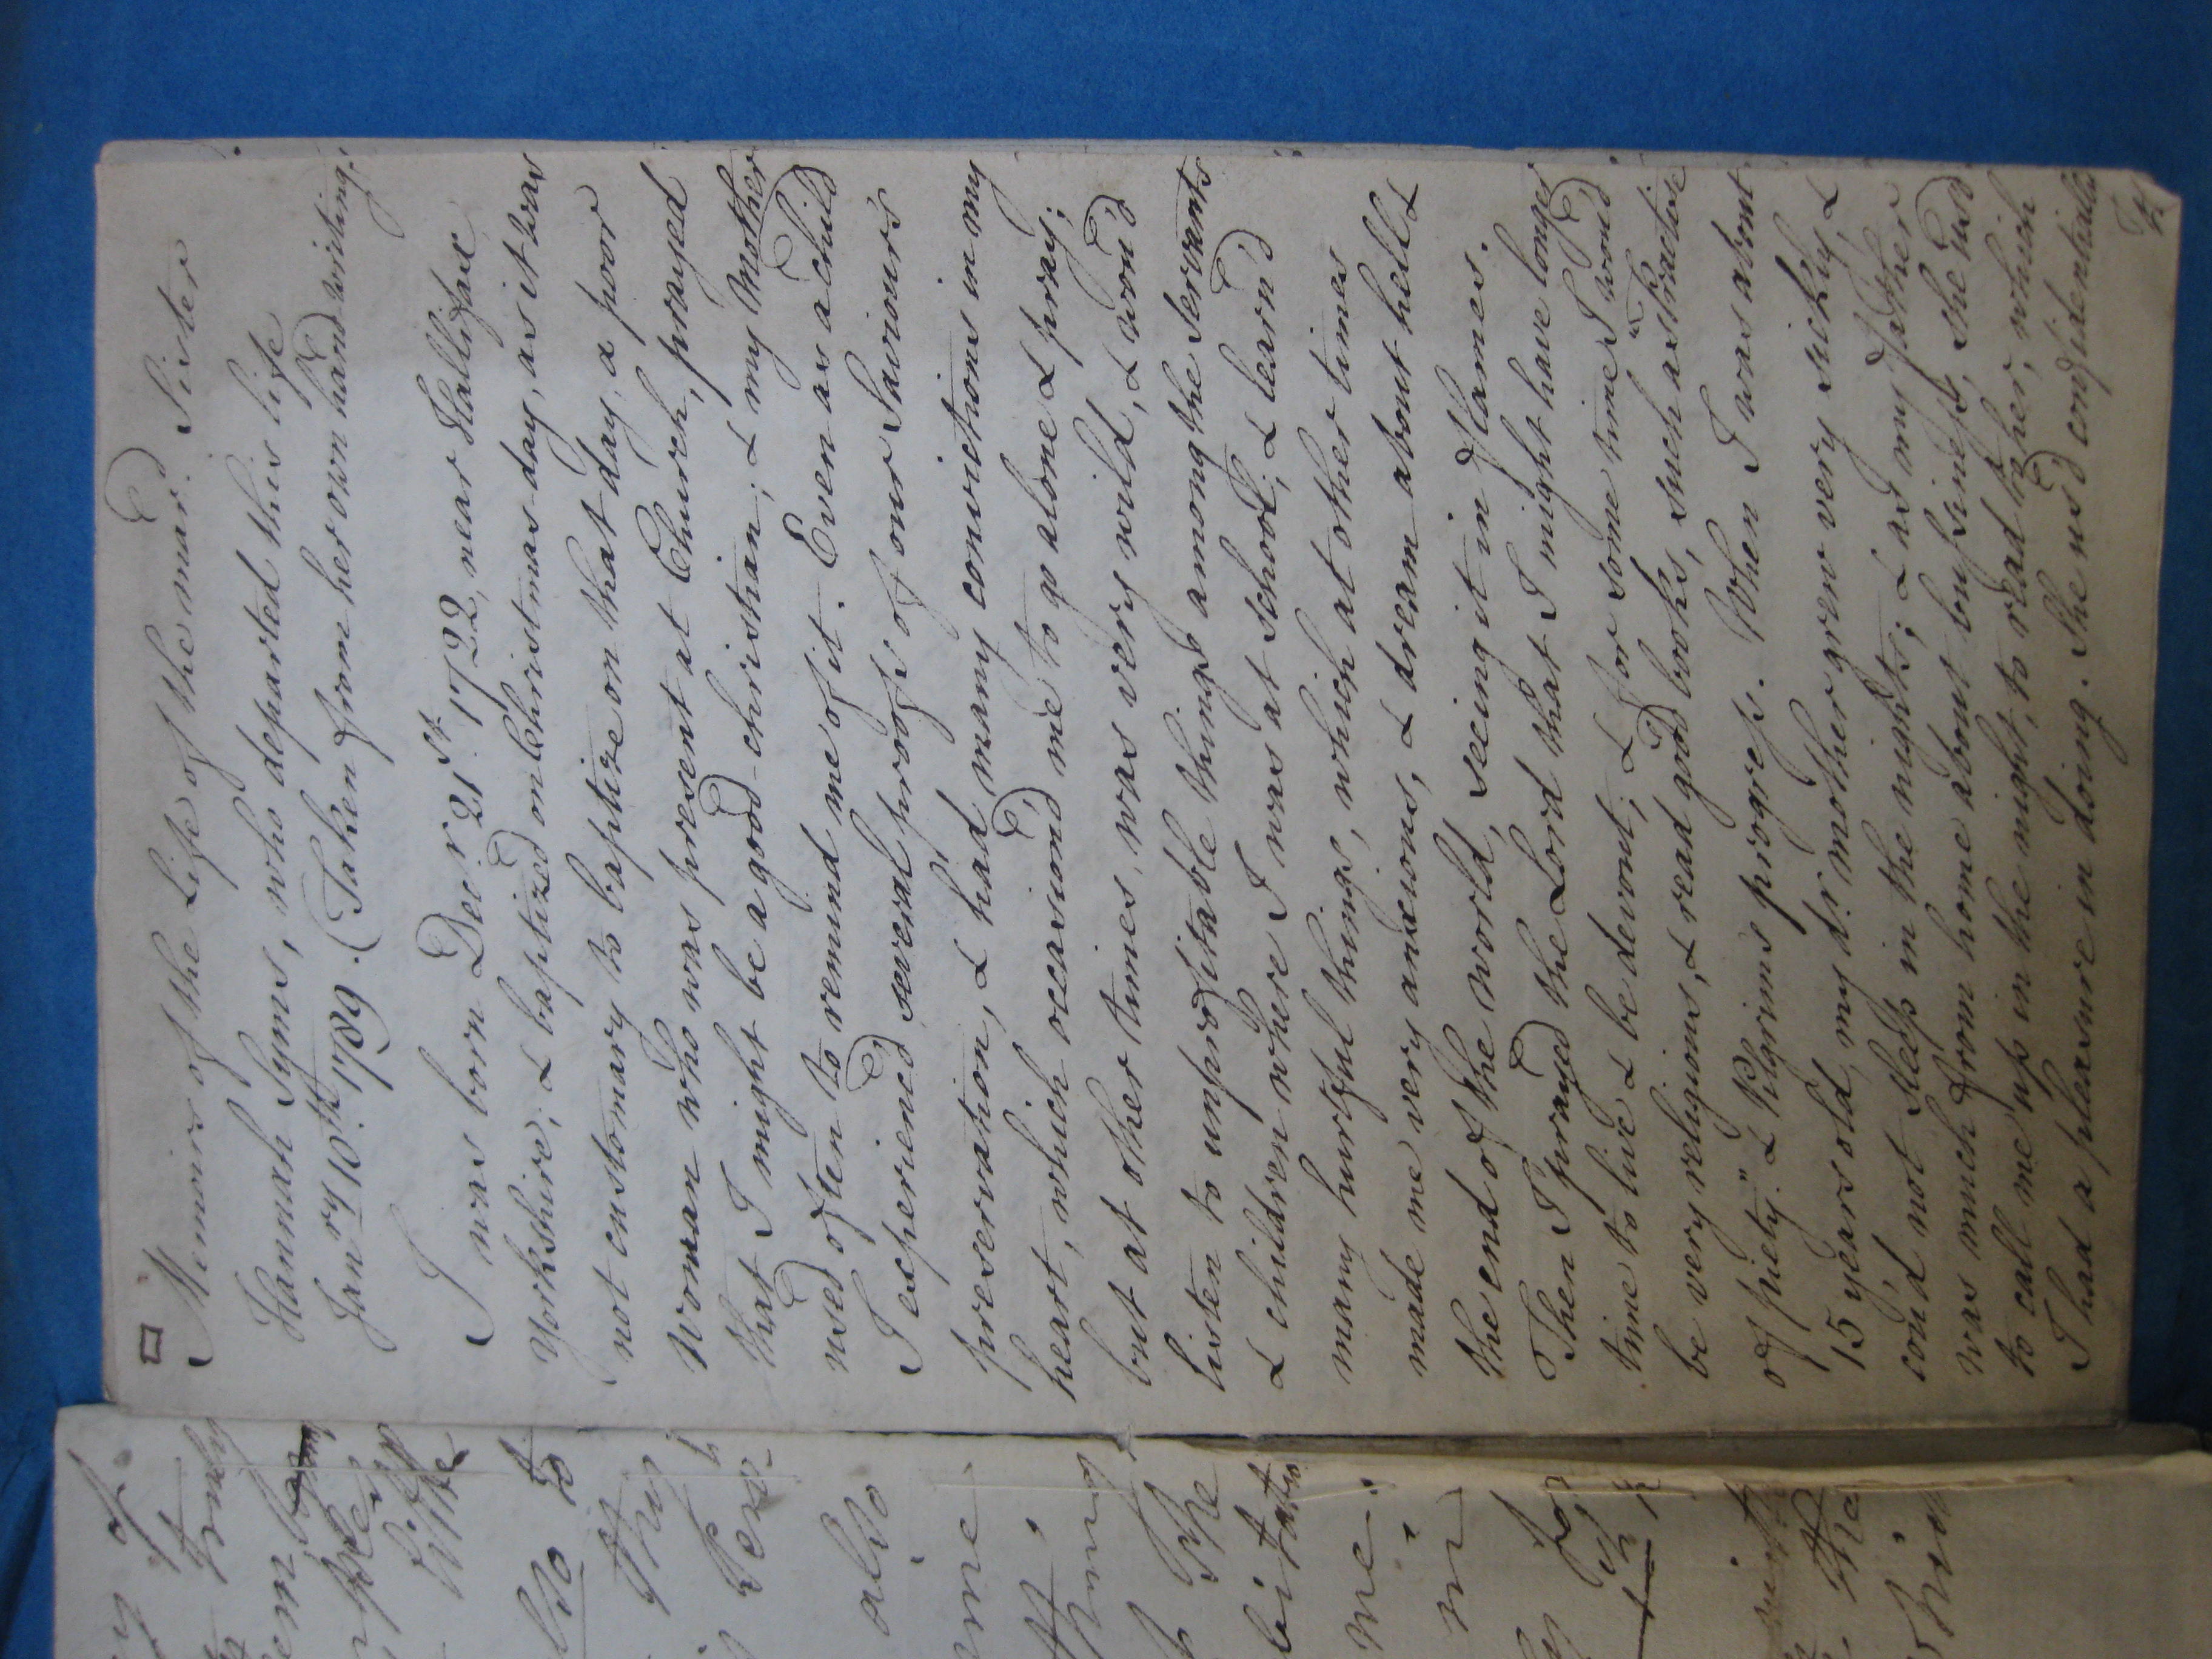 Memoirs of the Life of the mard. Sister
Hannah Syms, who departed this life
Janry 10th. 1789. (Taken from her own hand-writing.
I was born Decr. 21st. 1722, near Hallifax
Yorkshire; & baptized on Christmas-day, as it was
not customary to baptize on that day, a poor
woman who was present at Church, prayed
that I might be a good-christian; & my Mother
used often to remind me of it. Even as a child
I experienc'd several proofs of our Saviour's
preservation, & had many convictions in my
heart, which occasion'd me to go alone & pray;
but at other times, was very wild, & wou'd
listen to unprofitable things among the Servants
& children where I was at school; & learn'd
many hurtful things, which at other times
made me very anxious, & dream about hell &
the end of the world, seeing it in flames.
Then I prayed the Lord that I might have longer
time to live & be devout; & for some time I wou'd
be very religious, & read good books, such as "Practise
of piety." & Pilgrim's progress. When I was about
15 years old, my dr. mother grew very sickly, &
cou'd not sleep in the nights; & as my father
was much from home about bussiness, she us'd
to call me up in the night, to read to her, which
I had a pleasure in doing. She us'd confidentially
of
truly
little
also to
this
also
me
The
me.
the